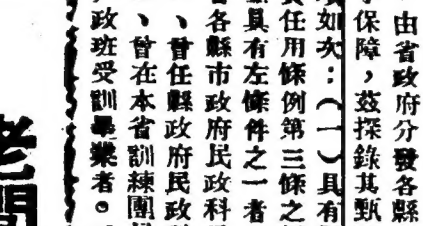 由省政府分發各縣
保障，茲採錄其甄
如次：（一）具有
任用條例第三條之
具有左條件之一者
各縣市政府民政科
、曾任縣政府民政
、曾在本省訓練團
政班受訓畢業者。
老闆